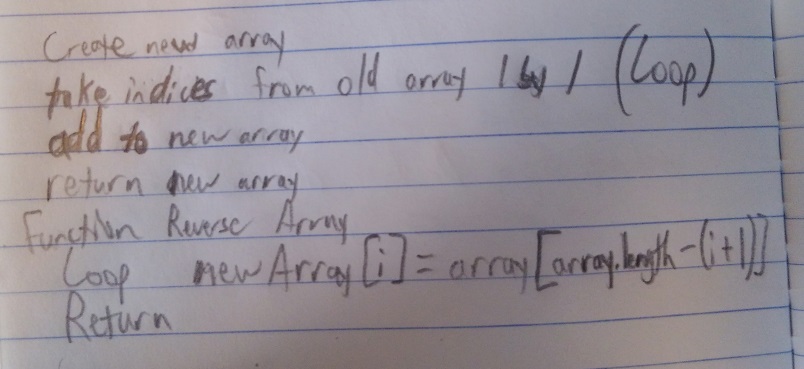 Create new array
take indices from old array 1 by 1 (Loop)
add to new array
return new array
Function Reverse Array
Loop newArray[i] = array[array.length-(i+1)]
Return